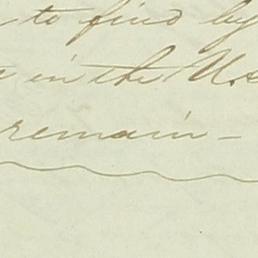 to find by
in the U.S
remain -